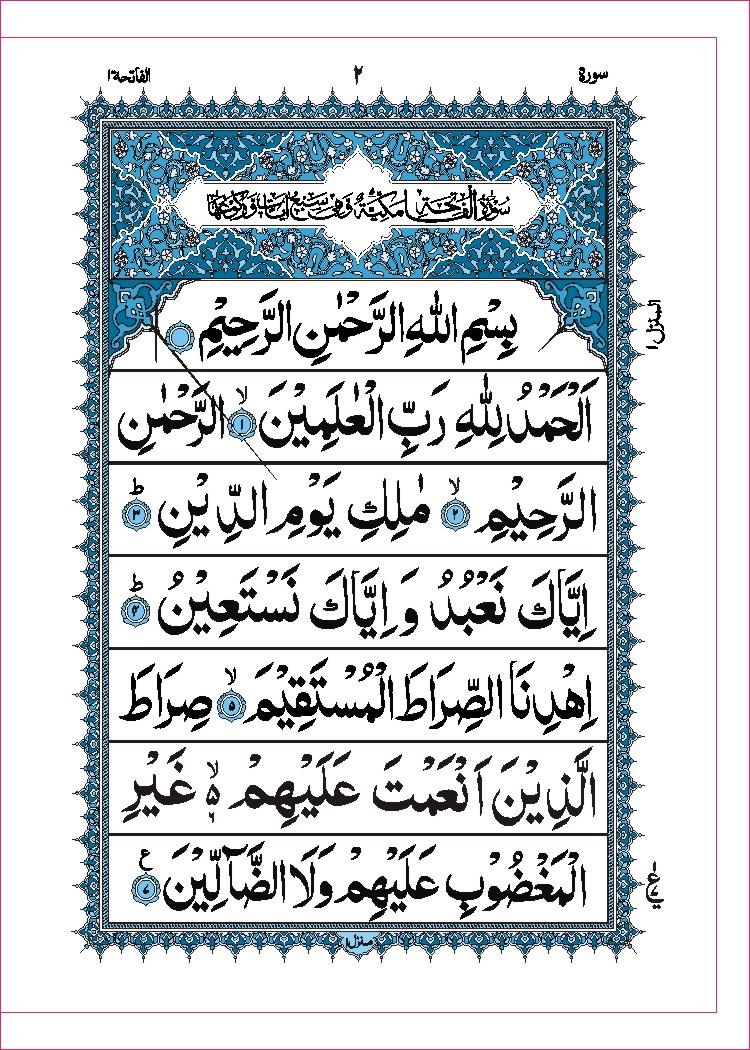 سورة ٢ الفاتحة ١
سورة الفاتحة مكية وهي سبع آيات وركوعها
بِسْمِ اللّٰهِ الرَّحْمٰنِ الرَّحِيْمِ
المنزل ١
اَلْحَمْدُ لِلّٰهِ رَبِّ الْعٰلَمِيْنَ ۙ ١ الرَّحْمٰنِ
الرَّحِيْمِ ۙ ٢ مٰلِكِ يَوْمِ الدِّيْنِ ؕ ٣
اِيَّاكَ نَعْبُدُ وَ اِيَّاكَ نَسْتَعِيْنُ ؕ ۴
اِهْدِنَا الصِّرَاطَ الْمُسْتَقِيْمَ ۙ ۵ صِرَاطَ
الَّذِيْنَ اَنْعَمْتَ عَلَيْهِمْ ۙ۵ ٦ غَيْرِ
الْمَغْضُوْبِ عَلَيْهِمْ وَلَا الضَّآلِّيْنَ ع ٧
منزل ١